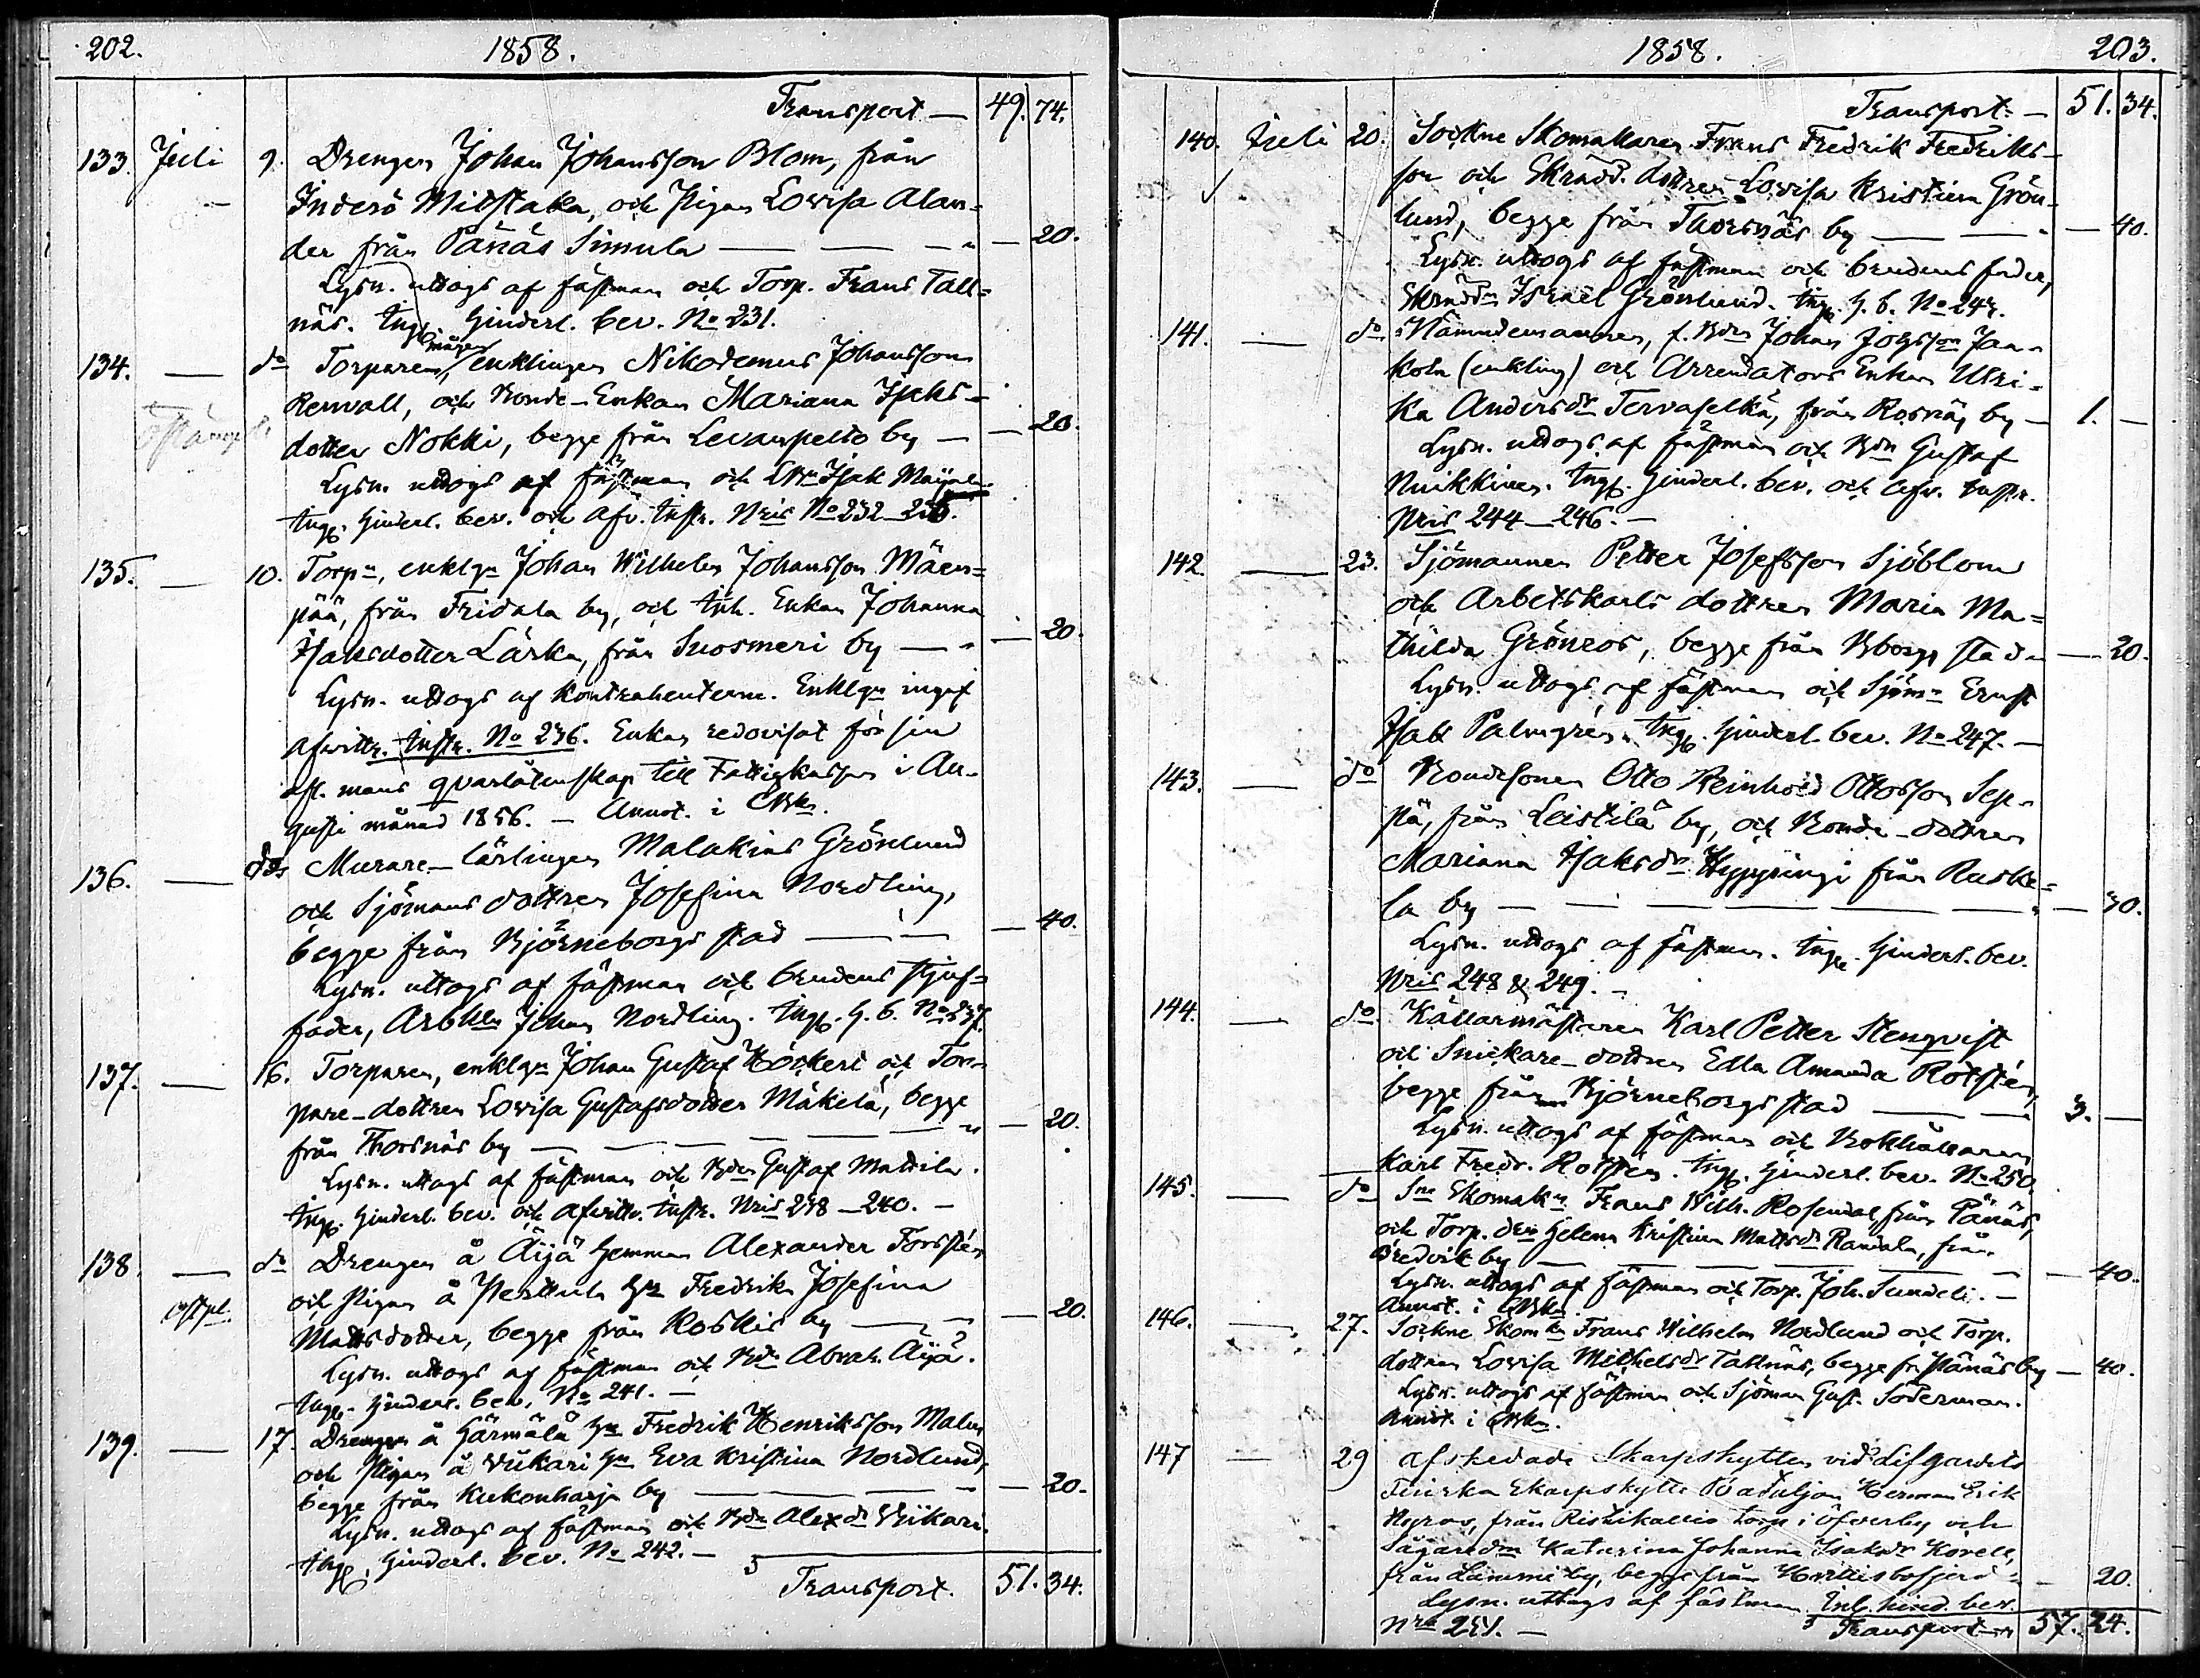 202. 1858.
Transport — 49. 74.
133. Juli 9. Drengen Johan Johansson Blom, från
Inderö Midstaka, och Pigan Lovisa Alan-
der från Pänäs Simula — — — 20.
Lysn. uttogs af fästman och Torp. Frans Tall-
näs. Ingl. hinderl. bev. No 231.
134. — do Torparen, enklingen Nikodemus Johansson
Renvall, och Bonde-Enkan Mariana Isaks-
dotter Nokki, begge från Levanpelto by — — 20.
Lysn. uttogs af fästman och Isak
Ingl. hinderl. bev. och afv. instr. Nris No 232
135. — 10. Torpn, enklgn Johan Wilhelm Johansson Mäen-
pää, från Fridala by, och inh. Enkan Johanna
Isaksdotter Lärka, från Suosmeri by — — 20.
Lysn. uttogs af kontrahenterne. Enklgn ingaf
afvittr. instr. No 236. Enkan redovisat för sin
afl. mans qvarlåtenskap till Fattigkassan i Au-
gusti månad 1856. — Annot. i
136. — do Murare-lärlingen Malakias Grönlund
och Sjömans dottren Josefina Nordling,
begge från Björneborgs stad — — 40.
Lysn. uttogs af fästman och brudens stjuf-
fader, Arbkln Johan Nordling. Ingl. h. b. No 237.
137. — 16. Torparen, enklgn Johan Gustaf Höckert och Tor-
pare-dottren Lovisa Gustafsdotter Mäkelä, begge
från Thorsnäs by — — — — 20.
Lysn. uttogs af fästman och Bdn Gustaf Mattila.
Ingl. hinderl. bev. och afvittr. instr. Nris 238—240. —
138. — do Drengen å Äijä hemman Alexander Forstén
och Pigan å Perttula hn Fredrika Josefina
Mattsdotter, begge från Koskis by — — 20.
Lysn. uttogs af fästman och Bdn Abrah. Äijä.
Ingl. hinderl. bev. No 241. —
139. — 17. Drengen å Härmälä hn Fredrik Henriksson Malm
och Pigan å Vikari hn Eva Kristina Nordlund,
begge från Kukonharja by — — 20.
Lysn. uttogs af fästman och Bdn Alexdr Viikari.
Ingl. hinderl. bev. No 242. —
Transport. 51. 34.
1858. 203.
Transport. — 51. 34.
140. Juli 20. Sockne Skomakaren Frans Fredrik Fredriks-
son och Skrädd. dottren Lovisa Kristina Grön-
lund, begge från Thorsnäs by — — 40.
Lysn. uttogs af fästman och brudens fader,
Skräddn Israël Grönlund. Ingl. h. b. No 243.
141. — do Nämndemannen, f. Bdn Johan Johsson Jaa-
kola (enkling) och Arrendators Enkan Ulri-
ka Andersdr Tervaselkä, från Rosnäs by — 1. —
Lysn. uttogs af fästman och Bdn Gustaf
Nuikkinen. Ingl. hinderl. bev. och afv. instr.
Nris 244—246. —
142. — 23. Sjömannen Petter Josefsson Sjöblom
och Arbetskarls dottren Maria Ma-
thilda Grönroos, begge från Bborgs stad — 20.
Lysn. uttogs af fästman och Sjömn Ernst
Isak Palmgrén. Ingl. hinderl. bev. No 247. —
143. — do Bondesonen Otto Reinhold Ottosson Sep-
pä, från Leistilä by, och Bonde-dottren
Mariana Isaksdr Hyypyingi från Ruske-
la by — — — —
Lysn. uttogs af fästman. Ingl. hinderl. bev.
Nris 248 & 249. —
144. — do Källarmästaren Karl Petter Stenqvist
och Snickare-dottren Edla Amanda Rotstén,
begge från Björneborgs stad — — 3. —
Lysn. uttogs af fästman och Bokhållaren
Karl Fredr. Rotstén. Ingl. hinderl. bev. No 250.
145. — do Sne Skomakn Frans Wilh. Rosendal, från Pänäs,
och Torp. drn Helena Kristina Mattsdr Randala, från
Bredvik by — — — 40.
Lysn. uttogs af fästman och Torp. Joh. Sundell. —
Annot. i
146. — 27. Sockne Skomkn Frans Wilhelm Nordlund och Torp.
dottren Lovisa Michelsdr Tallnäs, begge fr. Pänäs by — 40.
Lysn. uttogs af fästman och Sjöman Gust. Söderman.
Annot i
147 — 29 Afskedade Skarpskytten vid Lifgardets
Finska Skarpskytte Bataljon Herman Erik
Nyroos, från Ristikallio torp i Öfverby och
Sågaredrn Katarina Johanna Isaksdr Korell,
från Lammi by, begge från Hvittisbofjerd — 20.
Lysn. uttogs af fästman. Inl. hind. bev.
Nro 251. — Transport — 57. 24.